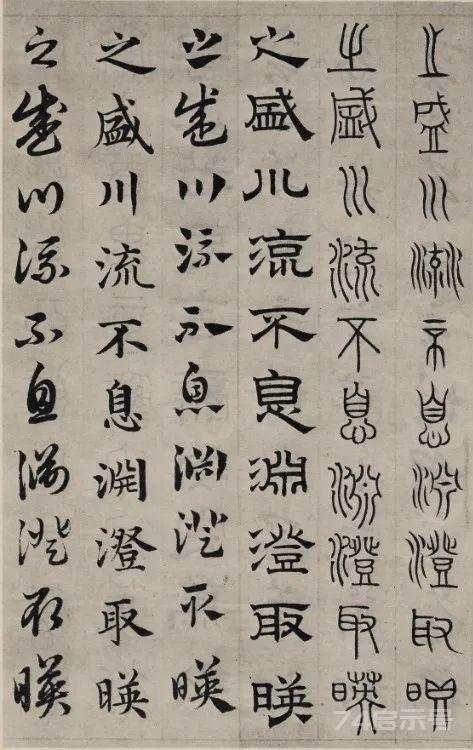 之盛川流不息淵澄取暎
之盛川流不息淵澄取暎
之盛川流不息淵澄取暎
之盛川流不息淵澄取暎
之盛川流不息淵澄取暎
之盛川流不息淵澄取暎
74启示号